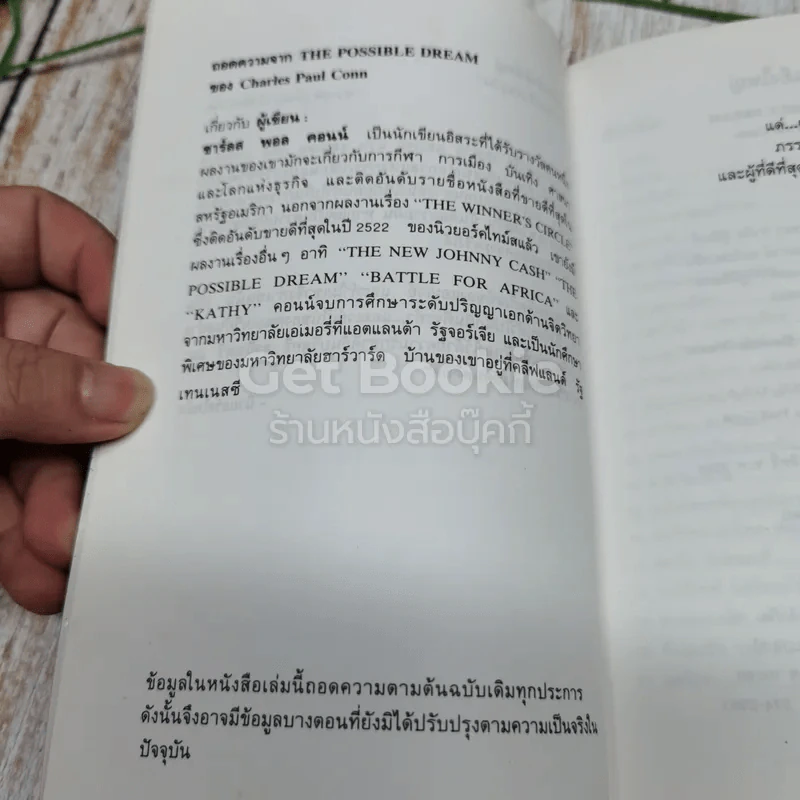 ถอดความจาก THE POSSIBLE DREAM
ของ Charles Paul Conn
เกี่ยวกับ ผู้เขียน :
ชาร์ลส พอล คอนน์ เป็นนักเขียนอิสระที่ได้รับรางวัล
ผลงานของเขามักจะเกี่ยวกับการกีฬา การเมือง บันเทิง
และโลกแห่งธุรกิจ และติดอันดับรายชื่อหนังสือที่ขายดีที่สุดใน
สหรัฐอเมริกา นอกจากผลงานเรื่อง "THE WINNER'S CIRCLE"
ซึ่งติดอันดับขายดีที่สุดในปี 2522 ของนิวยอร์คไทม์สแล้ว เขายังมี
ผลงานเรื่องอื่นๆ อาทิ "THE NEW JOHNNY CASH" "THE
POSSIBLE DREAM" "BATTLE FOR AFRICA" และ
"KATHY" คอนน์จบการศึกษาระดับปริญญาเอกด้านจิตวิทยา
จากมหาวิทยาลัยเอเมอรี่ที่แอตแลนต้า รัฐจอร์เจีย และเป็นนักศึกษา
พิเศษของมหาวิทยาลัยฮาร์วาร์ด บ้านของเขาอยู่ที่คลีฟแลนด์ รัฐ
เทนเนสซี
Get Bookie
ร้านหนังสือบุ๊คกี้
ข้อมูลในหนังสือเล่มนี้ถอดความตามต้นฉบับเดิมทุกประการ
ดังนั้นจึงอาจมีข้อมูลบางตอนที่ยังมิได้ปรับปรุงตามความเป็นจริงใน
ปัจจุบัน
แด่...
และผู้ที่ดีที่สุด